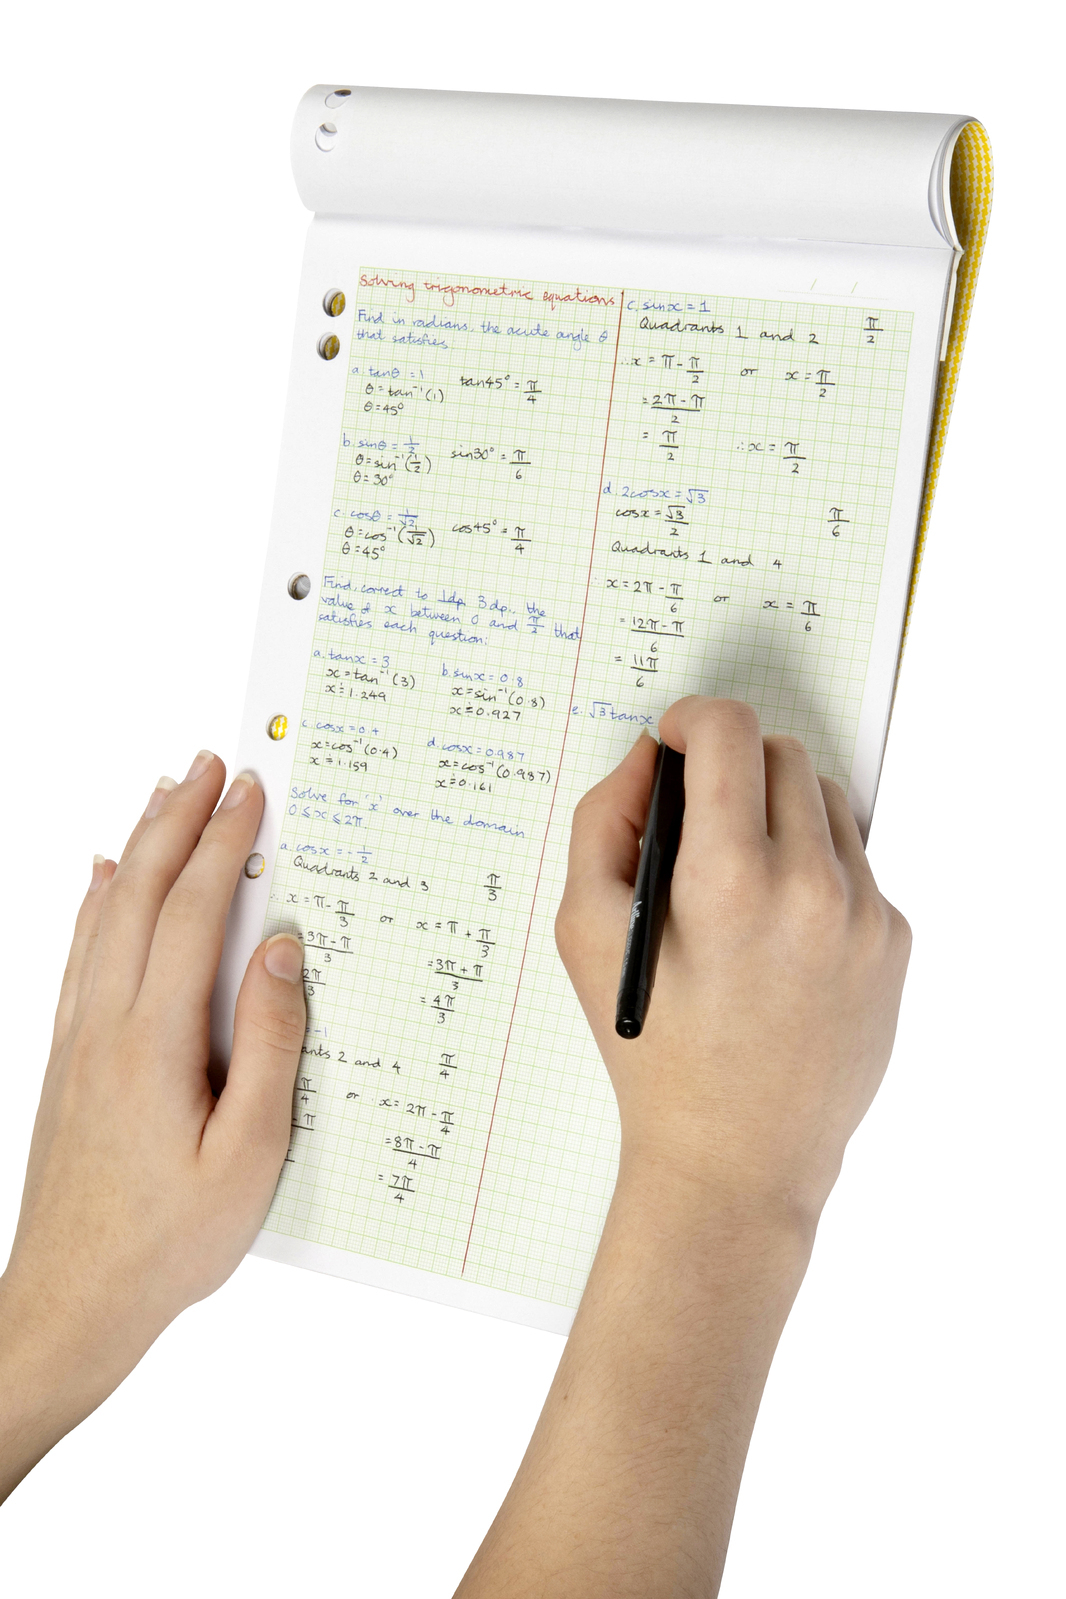 Solving trigonometric equations
Find in radians, the acute angle θ
that satisfies
a. tanθ = 1
θ = tan⁻¹(1)
θ = 45°
tan45° = π/4
b. sinθ = 1/2
θ = sin⁻¹(1/2)
θ = 30°
sin30° = π/6
c. cosθ = 1/√2
θ = cos⁻¹(1/√2)
θ = 45°
cos45° = π/4
Find, correct to 1dp 3dp., the
value of x between 0 and π/2 that
satisfies each question:
a. tanx = 3
x = tan⁻¹(3)
x ≐ 1.249
b. sinx = 0.8
x = sin⁻¹(0.8)
x ≐ 0.927
c. cosx = 0.4
x = cos⁻¹(0.4)
x ≐ 1.159
d. cosx = 0.987
x = cos⁻¹(0.987)
x ≐ 0.161
Solve for 'x' over the domain
0 ≤ x ≤ 2π.
a. cosx = -1/2
Quadrants 2 and 3 π/3
∴ x = π - π/3 or x = π + π/3
= (3π - π)/3 = (3π + π)/3
2π/3 = 4π/3
= -1
ants 2 and 4 π/4
π/4 or x = 2π - π/4
- π = (8π - π)/4
= 7π/4
c. sinx = 1
Quadrants 1 and 2 π/2
∴ x = π - π/2 or x = π/2
= (2π - π)/2
= π/2 ∴ x = π/2
d. 2cosx = √3
cosx = √3/2 π/6
Quadrants 1 and 4
∴ x = 2π - π/6 or x = π/6
= (12π - π)/6
= 11π/6
e. √3tanx